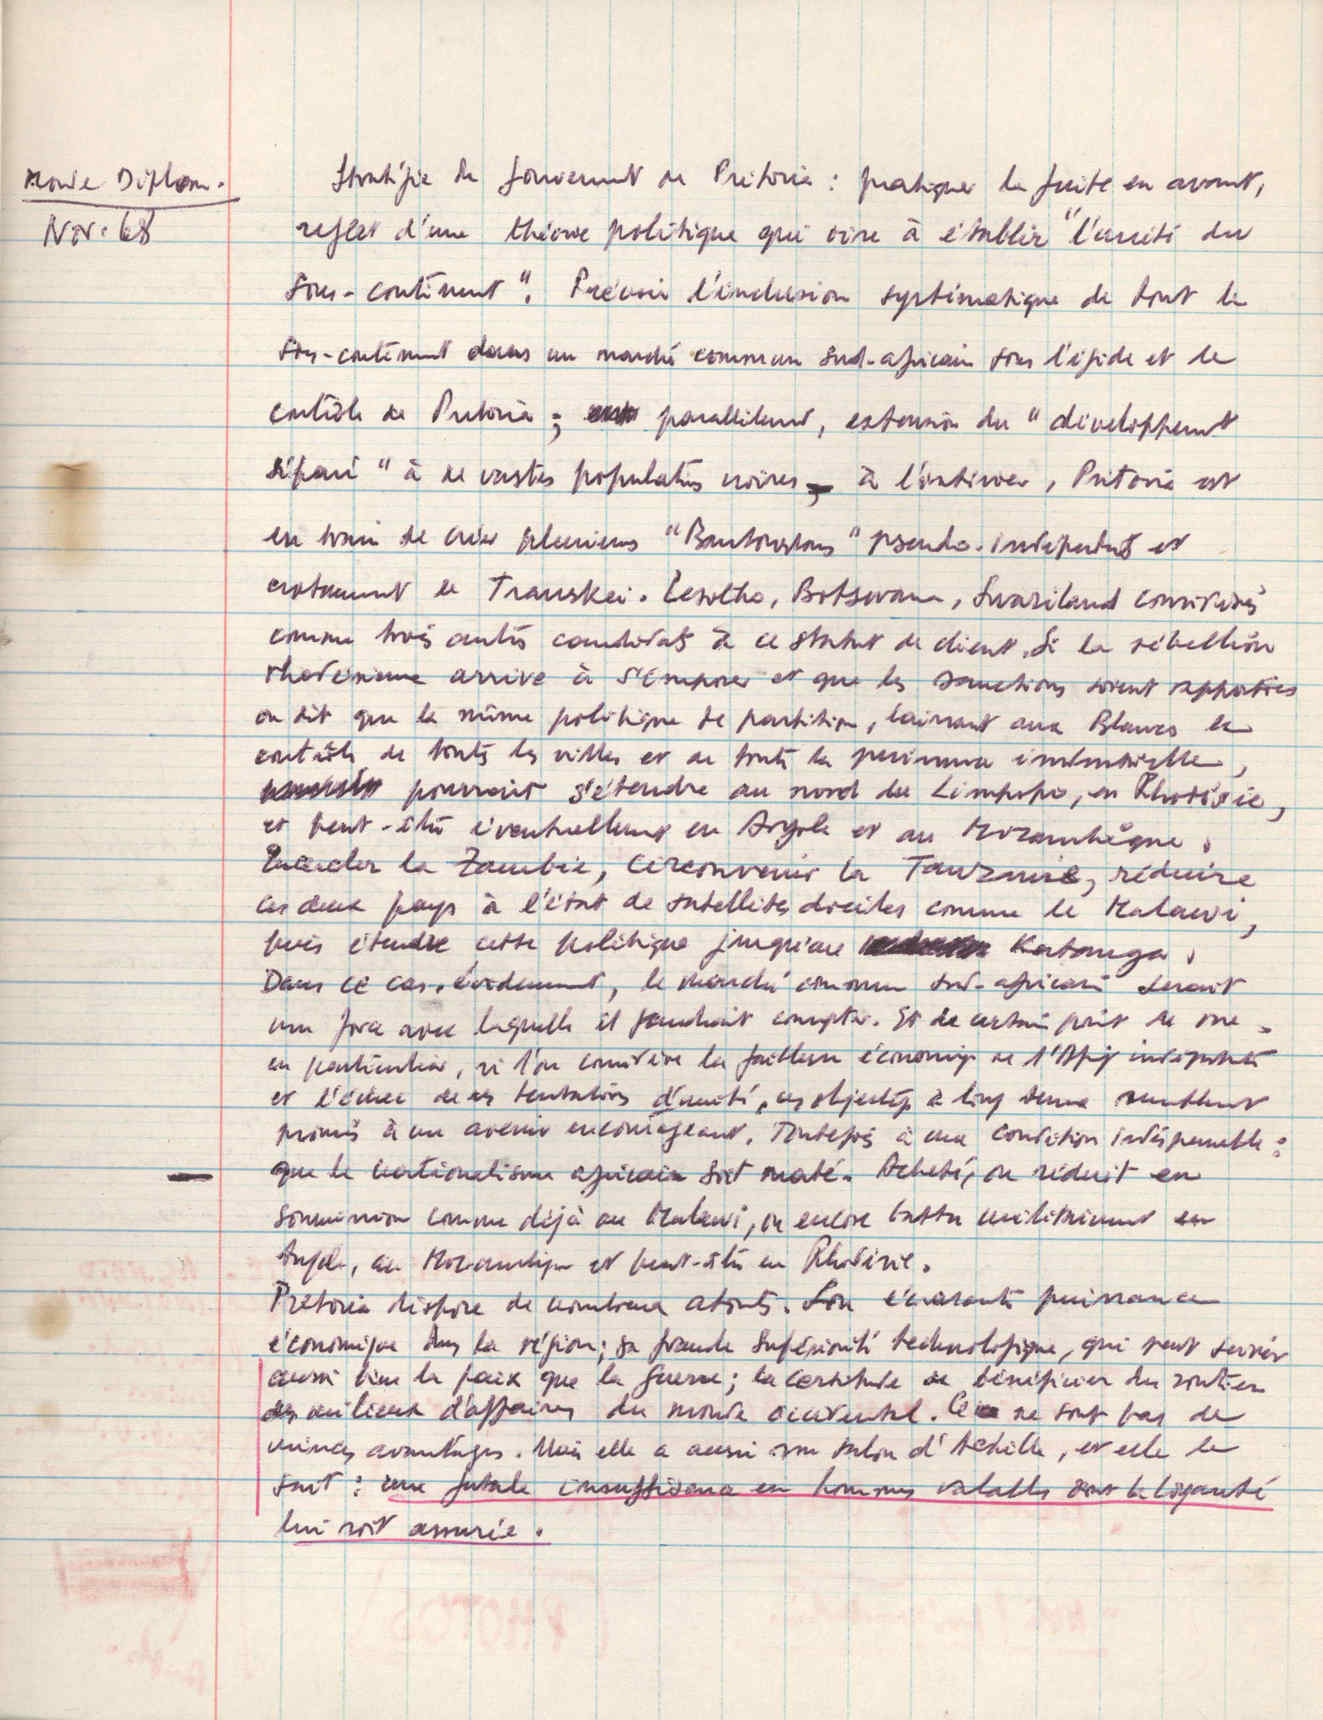 Monde Diplom.
Nov. 68
Stratégie du Gouvernement de Pretoria : pratiquer la fuite en avant,
reflet d'une théorie politique qui vise à établir "l'unité du
sous-continent". Prévoir l'inclusion systématique de tout le
sous-continent dans un marché commun sud-africain sous l'égide et le
contrôle de Pretoria ; parallèlement, extension du "développement
séparé" à de vastes populations noires, à l'intérieur, Pretoria est
en train de créer plusieurs "Bantoustans" pseudo-indépendants et
notamment le Transkei. Lesotho, Botswana, Swaziland considérés
comme trois autres candidats à ce statut de client. Si la rébellion
rhodésienne arrive à s'imposer et que les sanctions soient rapportées
on dit que la même politique de partition, laissant aux Blancs le
contrôle de toutes les villes et de toute la puissance industrielle,
pourrait s'étendre au nord du Limpopo, en Rhodésie,
et peut-être éventuellement en Angola et au Mozambique.
la Zambie, circonvenir la Tanzanie, réduire
ces deux pays à l'état de satellites dociles comme le Malawi,
puis étendre cette politique jusqu'au Katanga.
Dans ce cas, évidemment, le marché commun sud-africain serait
une force avec laquelle il faudrait compter. Et de certain point de vue,
en particulier, si l'on considère la faiblesse économique de l'Afrique indépendante
et l'échec de ses tentatives d'unité, ces objectifs à long terme semblent
promis à un avenir encourageant. Toutefois à une condition indispensable :
que le nationalisme africain soit maté. Acheté, ou réduit en
soumission comme déjà au Malawi, ou encore battu militairement en
Angola, au Mozambique et peut-être en Rhodésie.
Pretoria dispose de nombreux atouts. Son écrasante puissance
économique dans la région ; sa grande supériorité technologique, qui peut servir
aussi bien la paix que la guerre ; la certitude de bénéficier du soutien
des milieux d'affaires du monde occidental. Ce ne sont pas de
minces avantages. Mais elle a aussi son talon d'Achille, et elle le
sait : une fatale insuffisance en hommes valables dont la loyauté
lui soit assurée.
(PHOTOS)